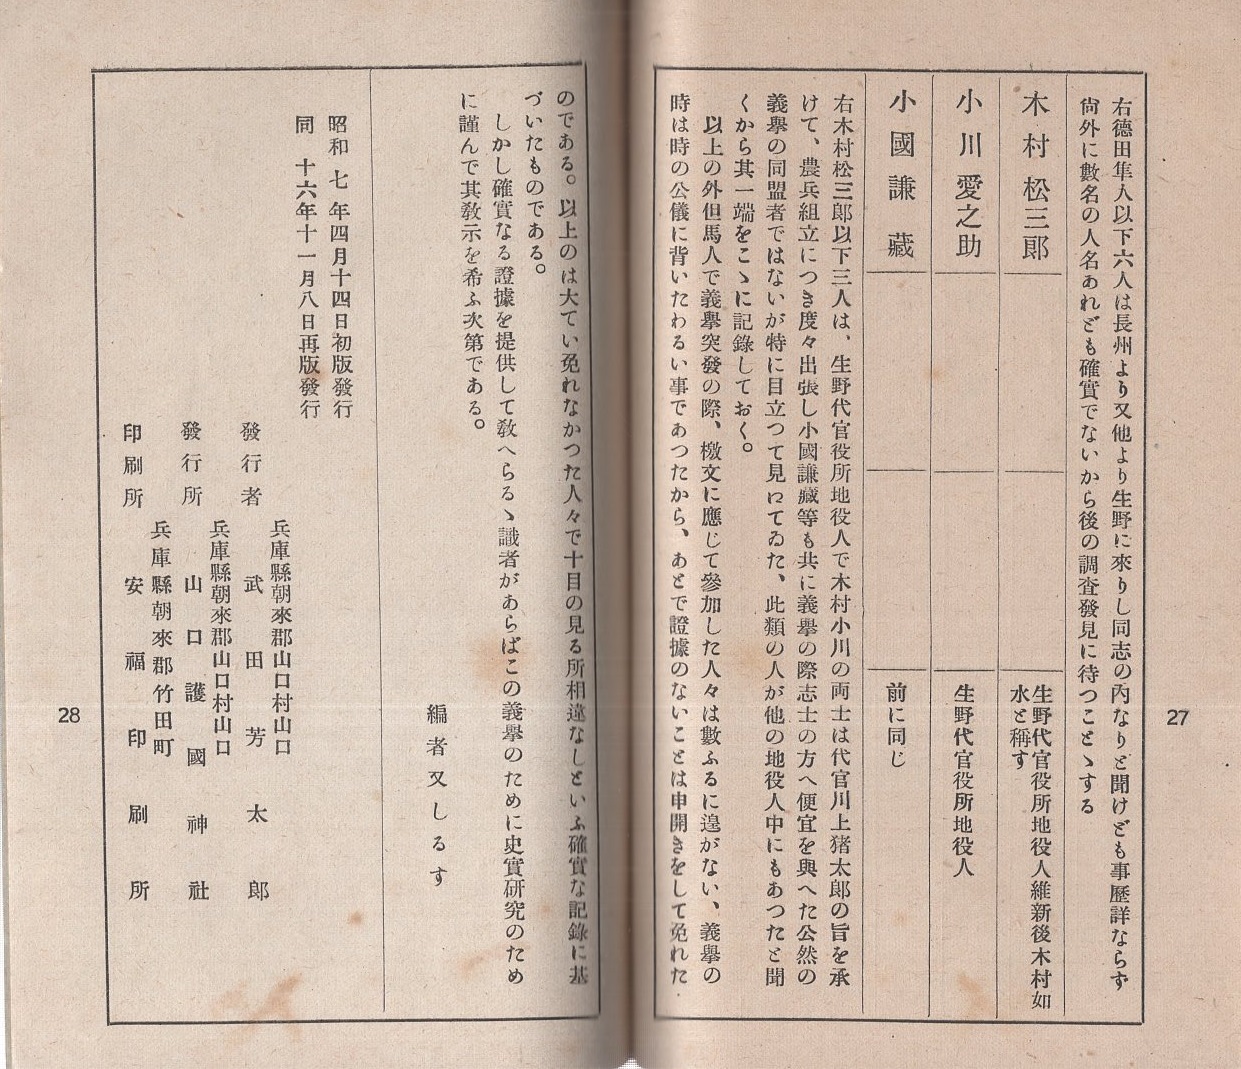 右德田隼人以下六人は長州より又他より生野に來りし同志の內なりと聞けども事歷詳ならず
尙外に數名の人名あれども確實でないから後の調査發見に待つことゝする
木村松三郎
生野代官役所地役人維新後木村如
水と稱す
小川愛之助
生野代官役所地役人
小國謙藏
前に同じ
右木村松三郎以下三人は、生野代官役所地役人で木村小川の両士は代官川上猪太郎の旨を承
けて、農兵組立につき度々出張し小國謙藏等も共に義擧の際志士の方へ便宜を與へた公然の
義擧の同盟者ではないが特に目立つて見ゐてゐた、此類の人が他の地役人中にもあつたと聞
くから其一端をこゝに記錄しておく。
以上の外但馬人で義擧突發の際、檄文に應じて參加した人々は數ふるに遑がない、義擧の
時は時の公儀に背いたわるい事であつたから、あとで證據のないことは申開きをして免れた
27
のである。以上のは大てい免れなかつた人々で十目の見る所相違なしといふ確實な記錄に基
づいたものである。
しかし確實なる證據を提供して敎へらるゝ識者があらばこの義擧のために史實硏究のため
に謹んで其敎示を希ふ次第である。
編者又しるす
昭和七年四月十四日初版發行
同十六年十一月八日再版發行
兵庫縣朝來郡山口村山口
發行者 武田芳太郎
兵庫縣朝來郡山口村山口
發行所 山口護國神社
兵庫縣朝來郡竹田町
印刷所 安福印刷所
28